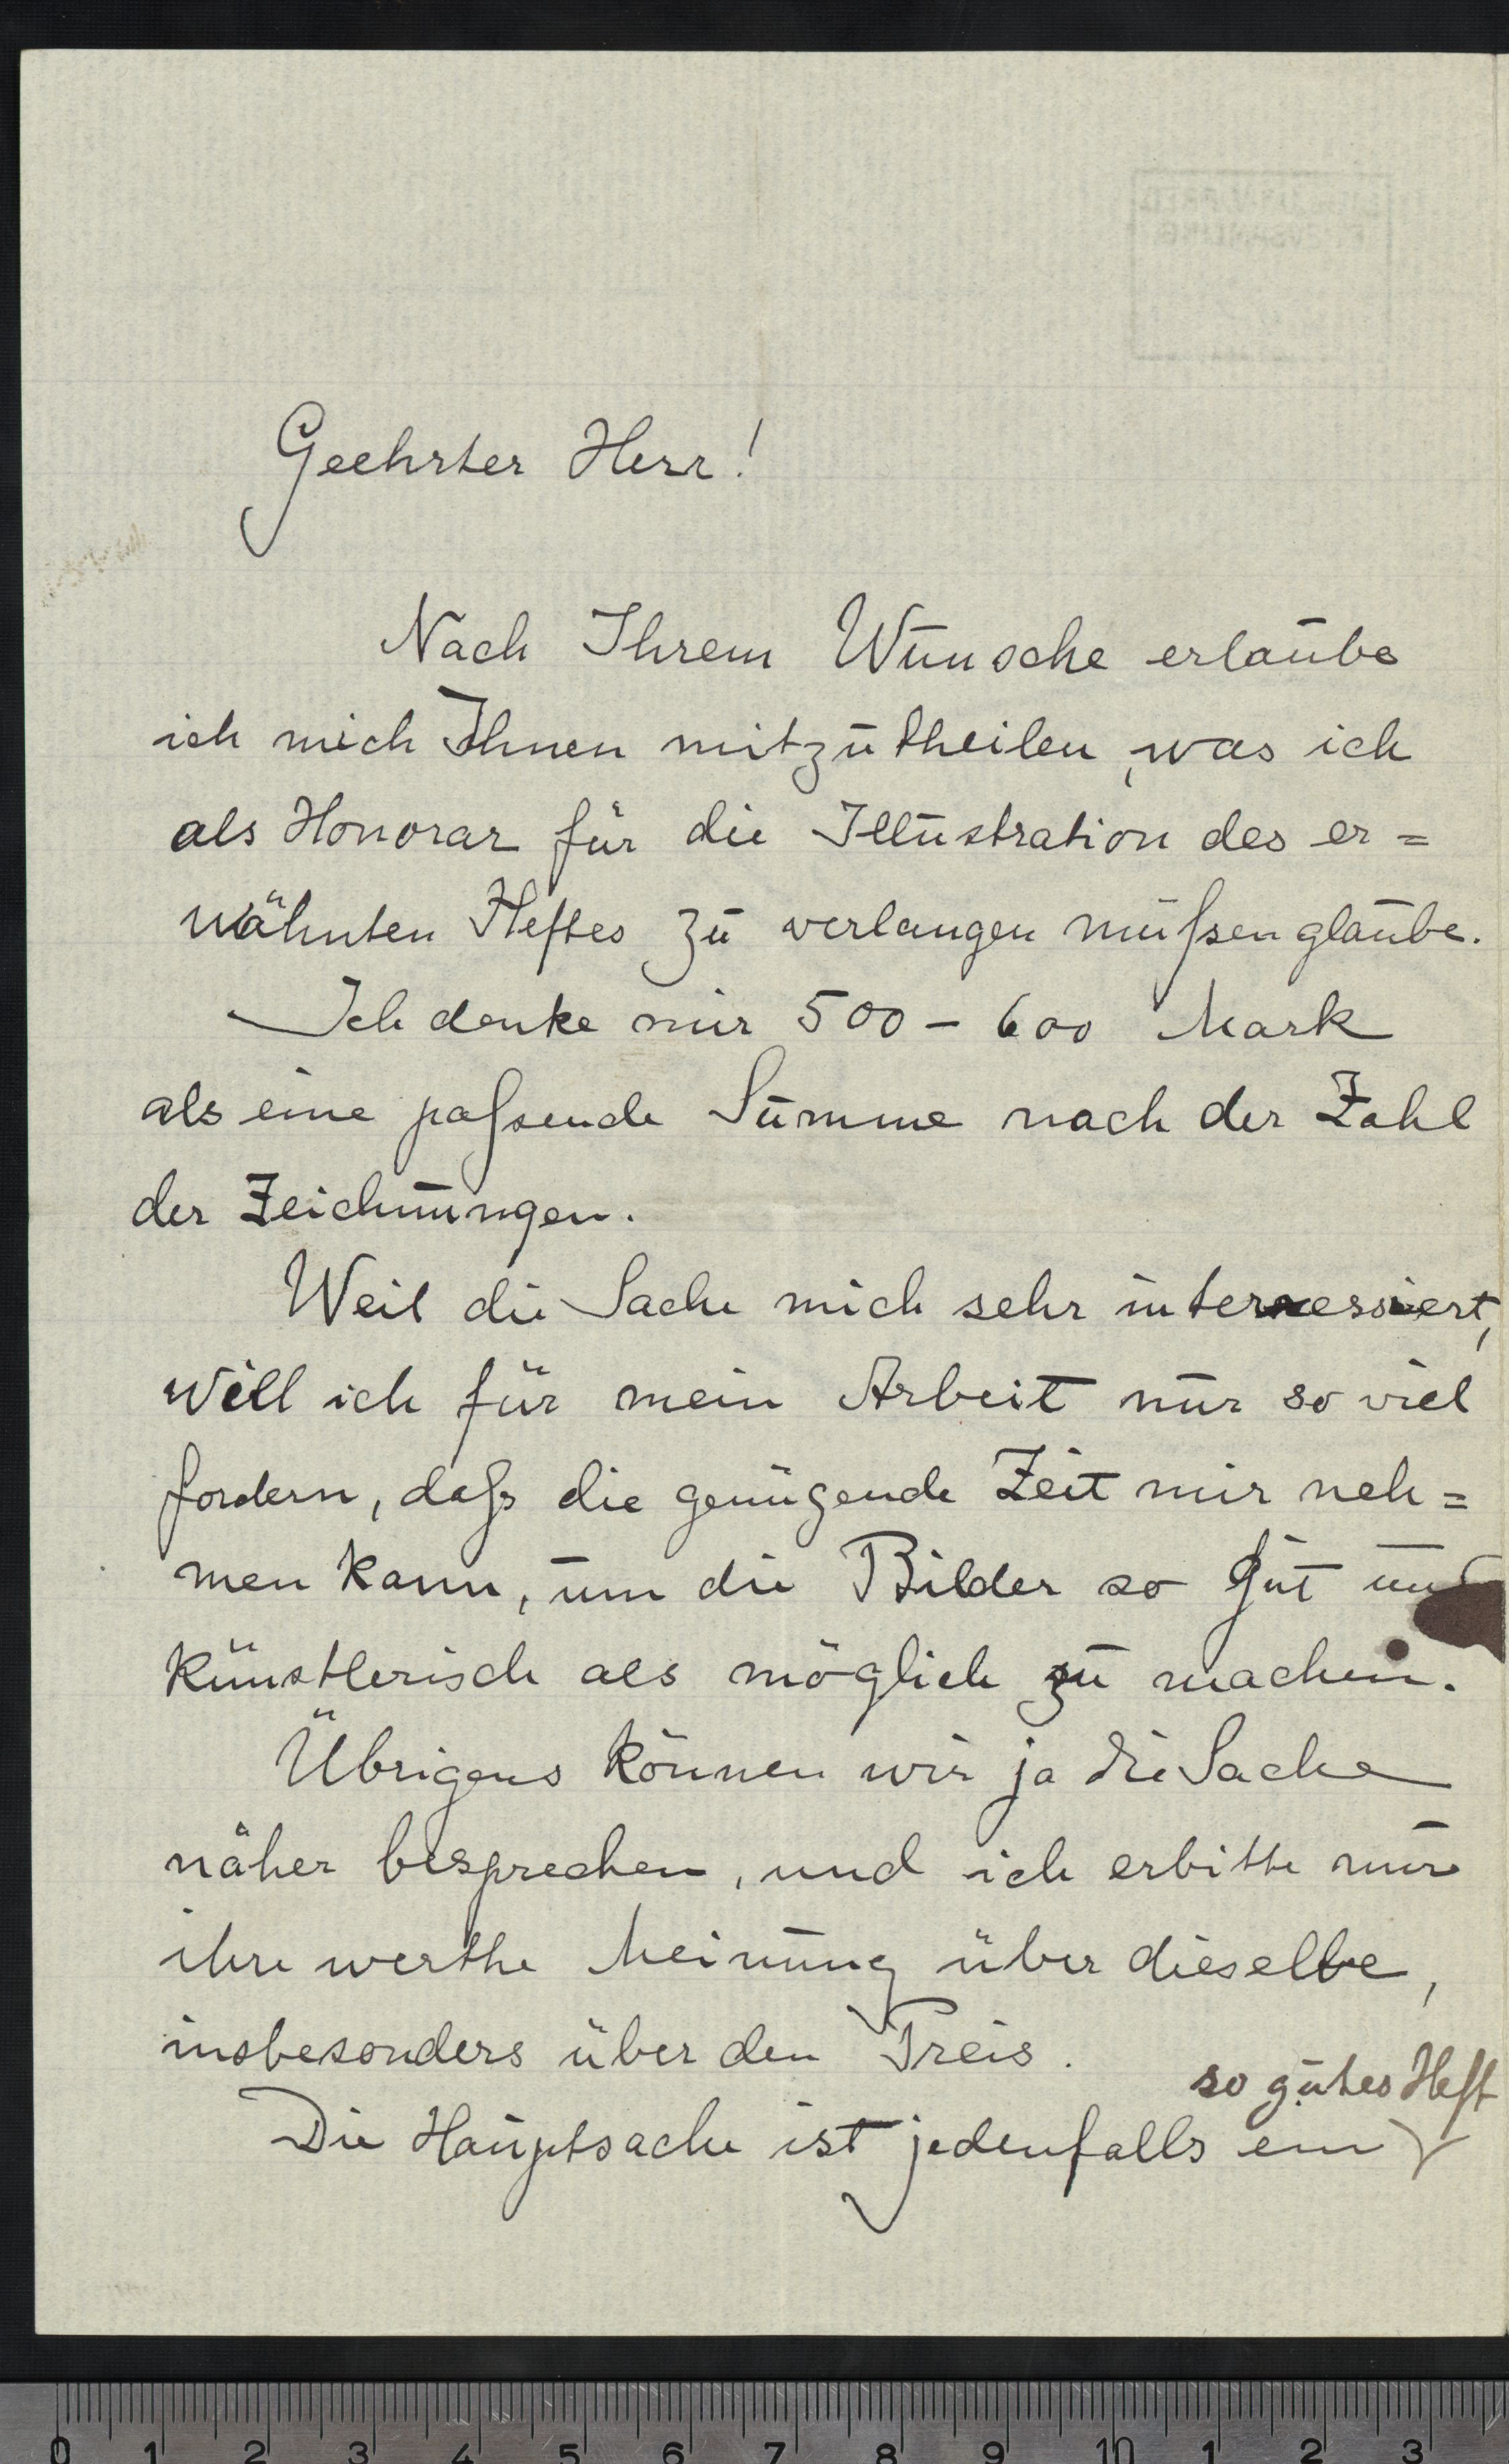 Geehrter Herr!
Nach Ihrem Wunsche erlaube
ich mich Ihnen mitzutheilen, was ich
als Honorar für die Illustration des er=
wähnten Heftes zu verlangen müßen glaube.
Ich denke mir 500 – 600 Mark
als eine paßende Summe nach der Zahl
der Zeichnungen.
Weil die Sache mich sehr interessiert,
will ich für mein Arbeit nur so viel
fordern, daß die genügende Zeit mir neh=
men kann, um die Bilder so gut und
künstlerisch als möglich zu machen.
Übrigens können wir ja die Sache
näher besprechen, und ich erbitte nur
ihre werthe Meinung über dieselbe,
insbesonders über den Preis.
so gutes Heft
Die Hauptsache ist jedenfalls ein
0 1 2 3 4 5 6 7 8 9 10 1 2 3